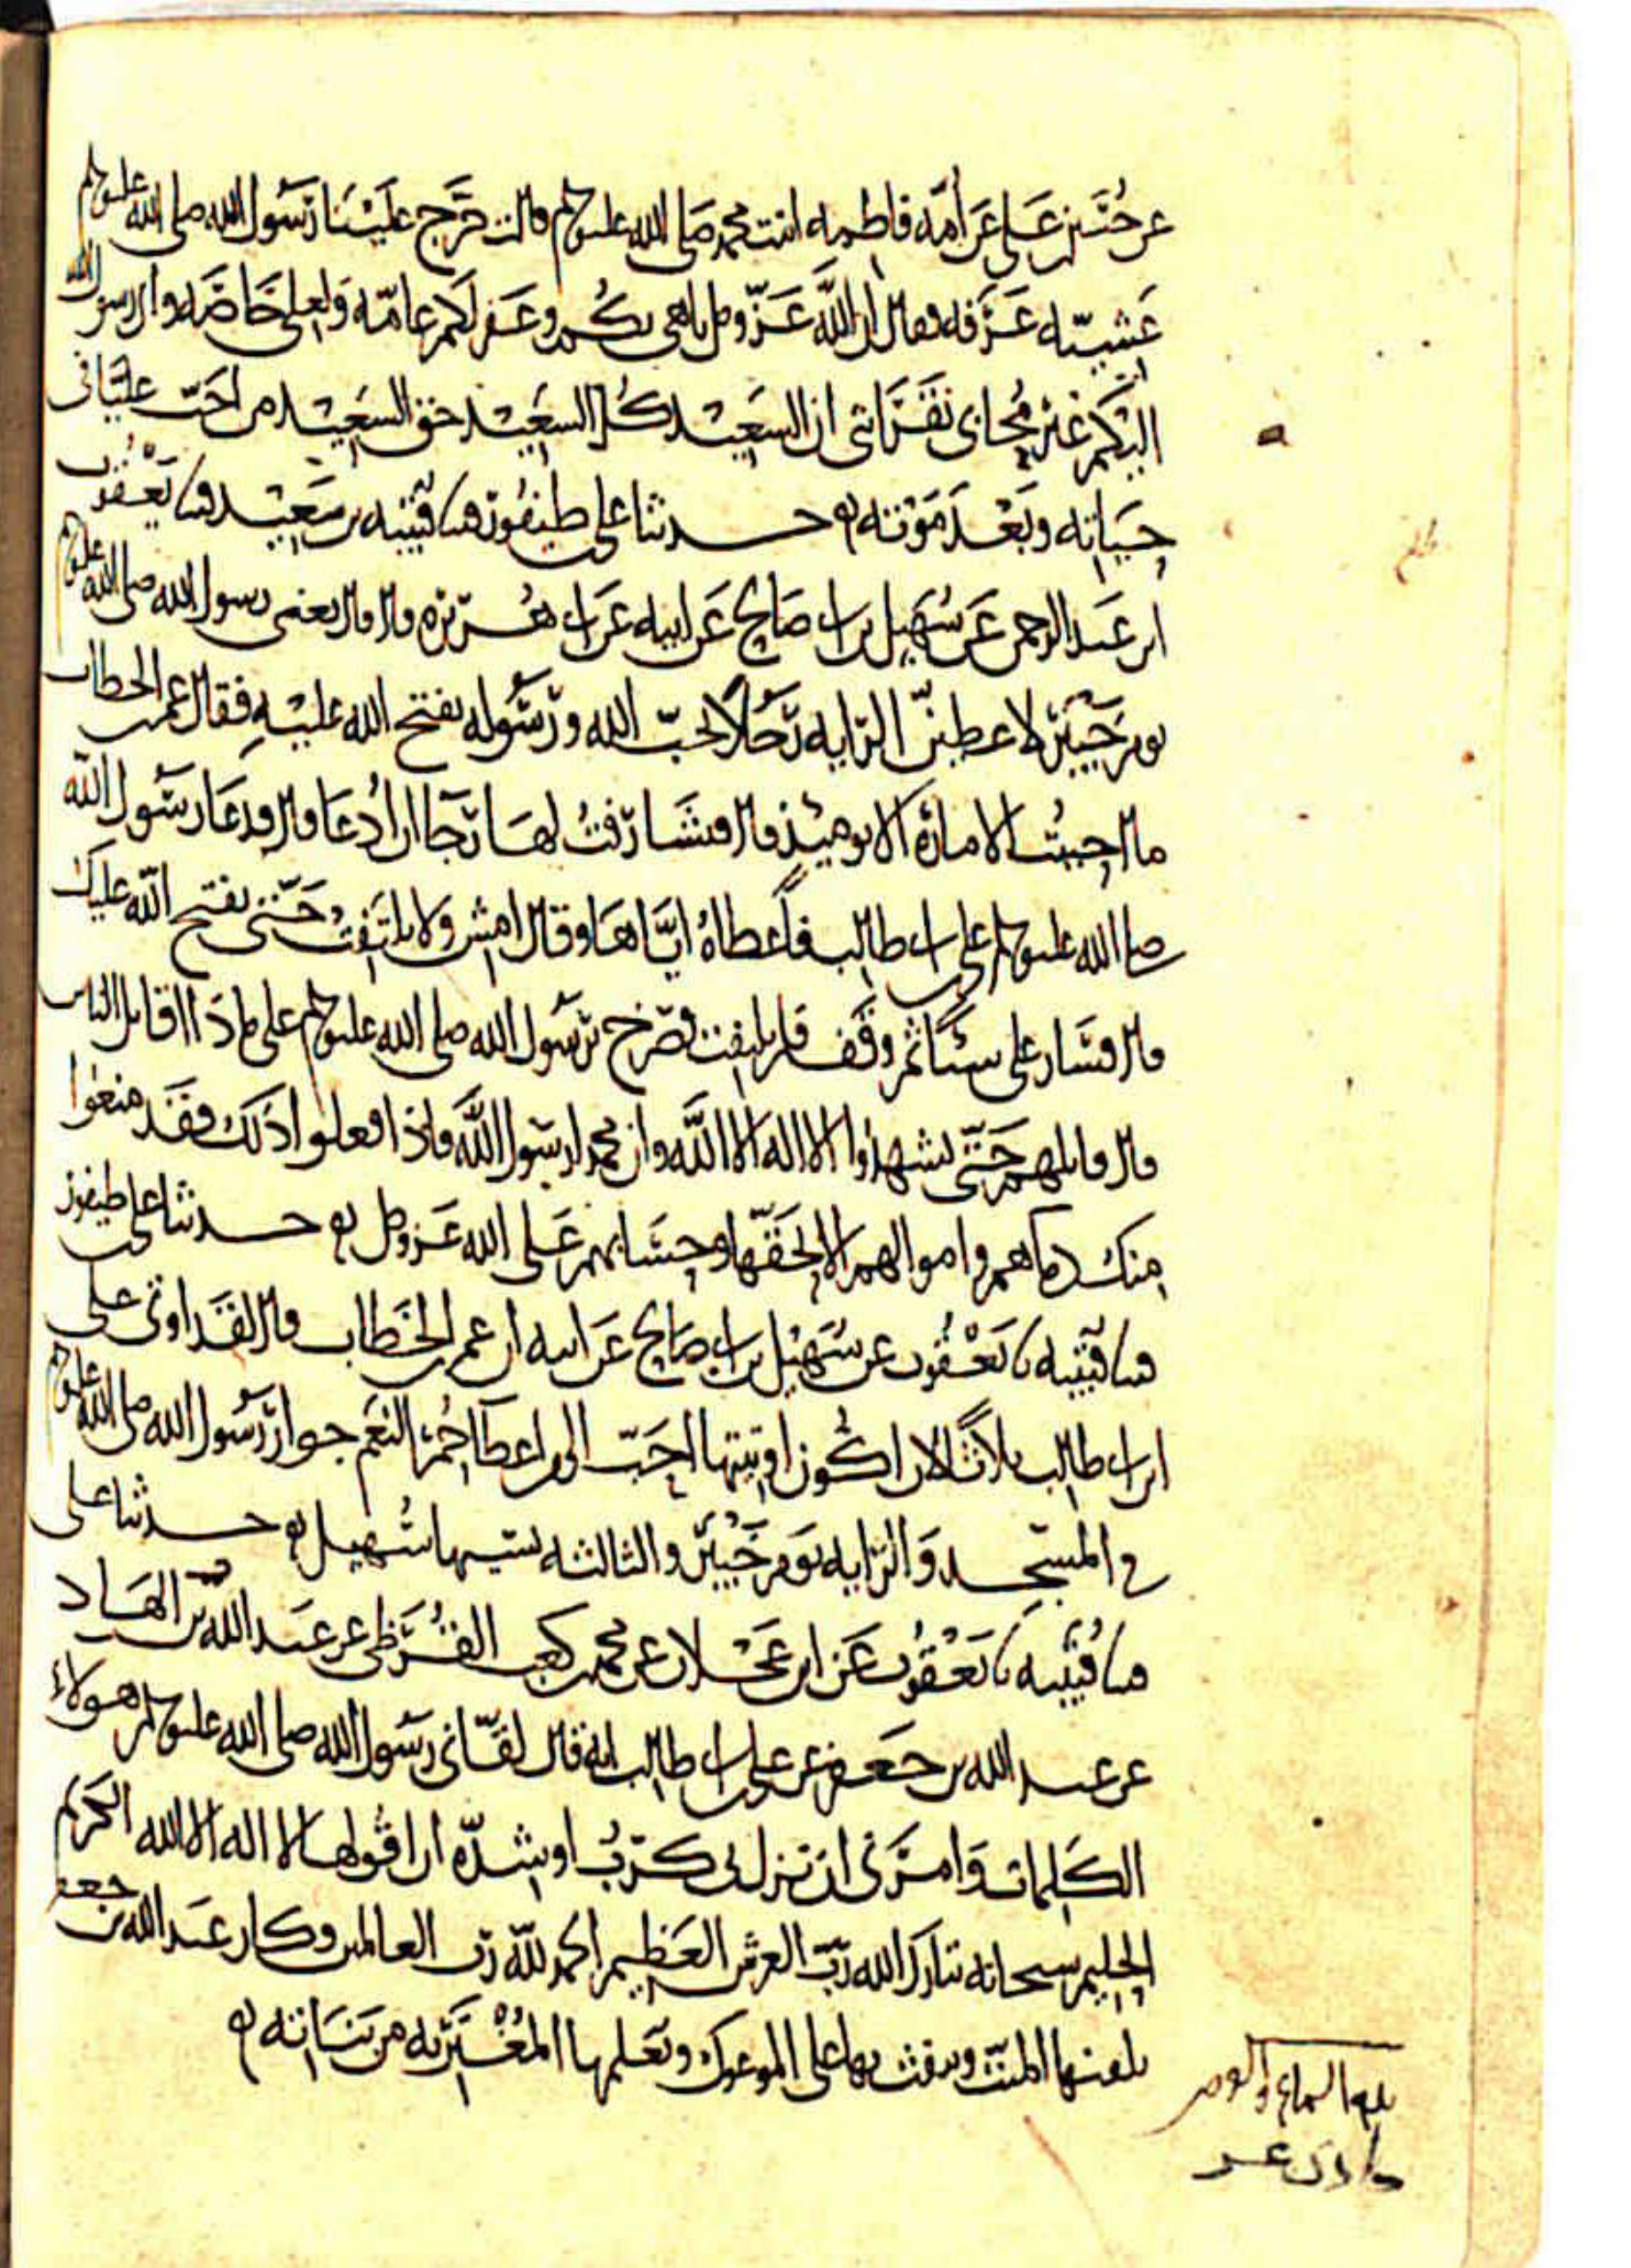 عن حسين بن علي عن أمه فاطمه ابنت محمد صلى الله عليه وسلم قالت خرج علينا رسول الله صلى الله عليه وسلم
عشيه عرفه فقال ان الله عز وجل باهى بكم وغفر لكم عامه ولعلي خاصه واني رسول الله
اليكم غير محابي لقرابتي ان السعيد كل السعيد حق السعيد من احب عليا في
حياته وبعد موته حدثنا علي بن طيفور ثنا قتيبه بن سعيد ثنا يعقوب
ابن عبد الرحمن عن سهيل بن ابي صالح عن ابيه عن ابي هريره قال قال يعني رسول الله صلى الله عليه وسلم
يوم خيبر لاعطين الرايه رجلا يحب الله ورسوله يفتح الله عليه فقال عمر بن الخطاب
ما احببت الاماره الا يوميذ قال فتشارفت لها رجا ان ادعا قال فدعا رسول الله
صلى الله عليه وسلم علي بن ابي طالب فاعطاه اياها وقال امش ولا تلتفت حتى يفتح الله عليك
قال فسار علي شيئا ثم وقف فلم يلتفت فصرخ برسول الله صلى الله عليه وسلم على ماذا اقاتل الناس
قال قاتلهم حتى يشهدوا الا اله الا الله وان محمدا رسول الله فاذا فعلوا ذلك فقد منعوا
منك دماهم واموالهم الا بحقها وحسابهم على الله عز وجل حدثنا علي بن طيفور
ثنا قتيبه نا يعقوب عن سهيل بن ابي صالح عن ابيه ان عمر بن الخطاب قال لقد اوتي علي
ابن ابي طالب ثلاثا لان اكون اوتيتها احب الي من اعطا حمر النعم جوار رسول الله صلى الله عليه وسلم
في المسجد والرايه يوم خيبر والثالثه نسيها سهيل حدثنا علي
ثنا قتيبه نا يعقوب عن ابن عجلان عن محمد بن كعب القرظي عن عبد الله بن الهاد
عن عبد الله بن جعفر عن علي بن ابي طالب انه قال لقاني رسول الله صلى الله عليه وسلم هولاء
الكلمات وامرني ان نزل بي كرب او شده ان اقولها لا اله الا الله الكريم
الحليم سبحانه تبارك الله رب العرش العظيم الحمد لله رب العالمين وكان عبد الله بن جعفر
يلقنها الميت وينفث بها على الموعوك ويعلمها المغتربه من بناته
بلغ السماع